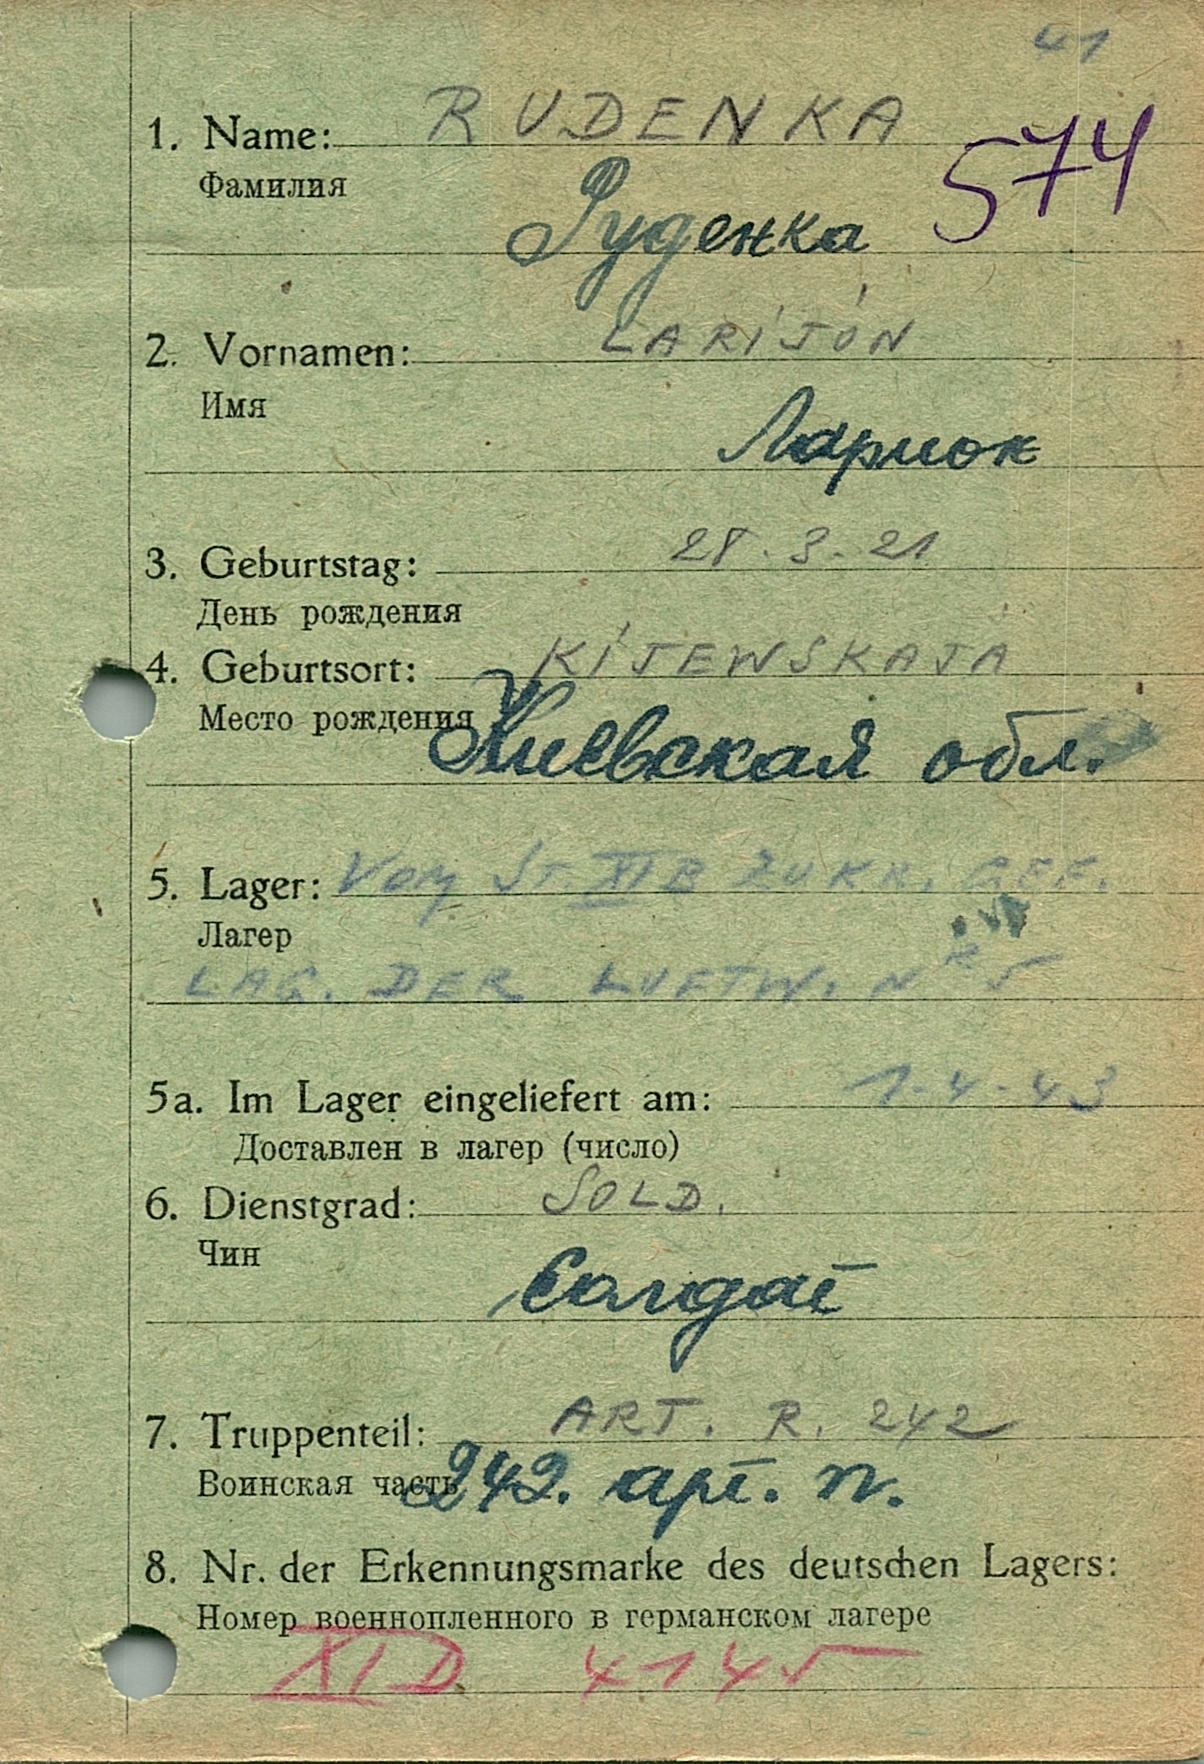 41
1. Name: RUDENKA
574
Фамилия
Руденка
2. Vornamen: LARIJON
Имя
Ларион
3. Geburtstag: 28.3.21
День рождения
4. Geburtsort: KIJEWSKAJA
Место рождения Киевская обл.
5. Lager: VOM ST XI B ZU KR. GEF.
Лагер
LAG. DER LUFTW. NR 5
5a. Im Lager eingeliefert am: 1.4.43
Доставлен в лагер (число)
6. Dienstgrad: SOLD.
Чин
Солдат
7. Truppenteil: ART. R. 242
Воинская часть 242. арт. п.
8. Nr. der Erkennungsmarke des deutschen Lagers:
Номер военнопленного в германском лагере
XI D 4145